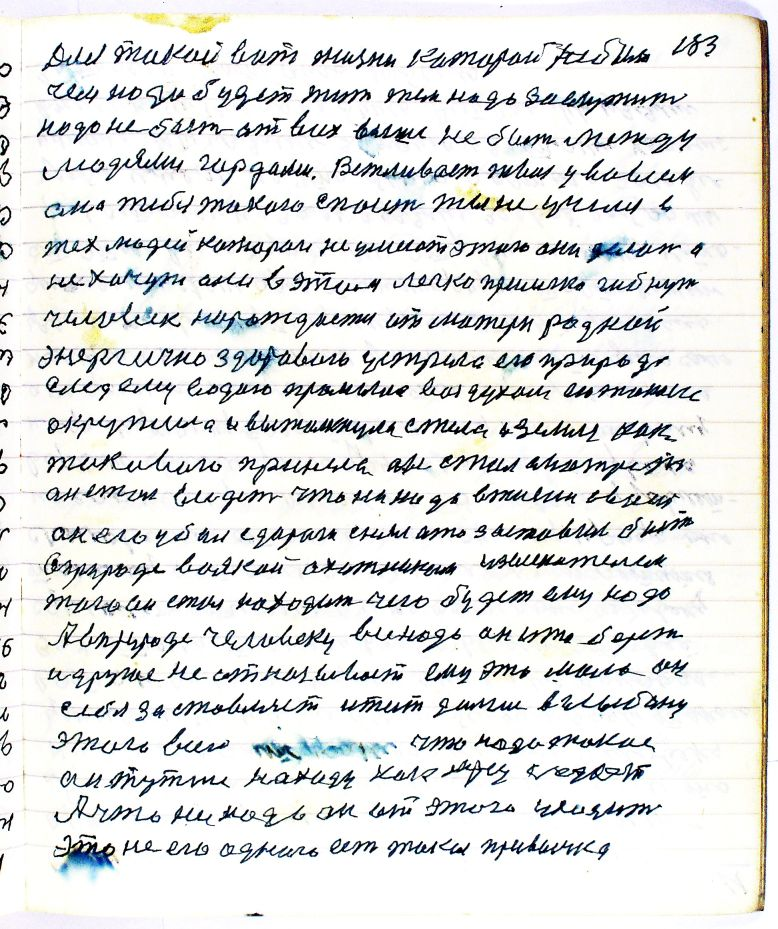 183
Для такой вот жизни которой
чем надо будет жит тем надо заслужит
надо не быт от всих выши не быт между
людями гордами.Ветливаст твоя у во всем
она тебя такого споит ты не учили в
тех людей котораи не умеют этого они делат а
не хочут они в этом легко прилично гибнут
человек нарождается от матери родной
энергично здорового устрела его природа
след ему водою промыла воздухом
окружила и вытолкнула стела земля как
такового приняла он стал смотреть
он стал следит что не надо в жизни
он его убил содрал снял это заставил быт
в природе всякой охотником изыскателем
того он стал находит чего будет ему надо
А в природе человеку все надо он это берет
и другое не отказывает ему это мало он
себя заставляет итит дальше в глыбину
этого всего что надо такое
он тут же находу как следует
А что не надо он от этого уходит
Это не его одного ест така привычка